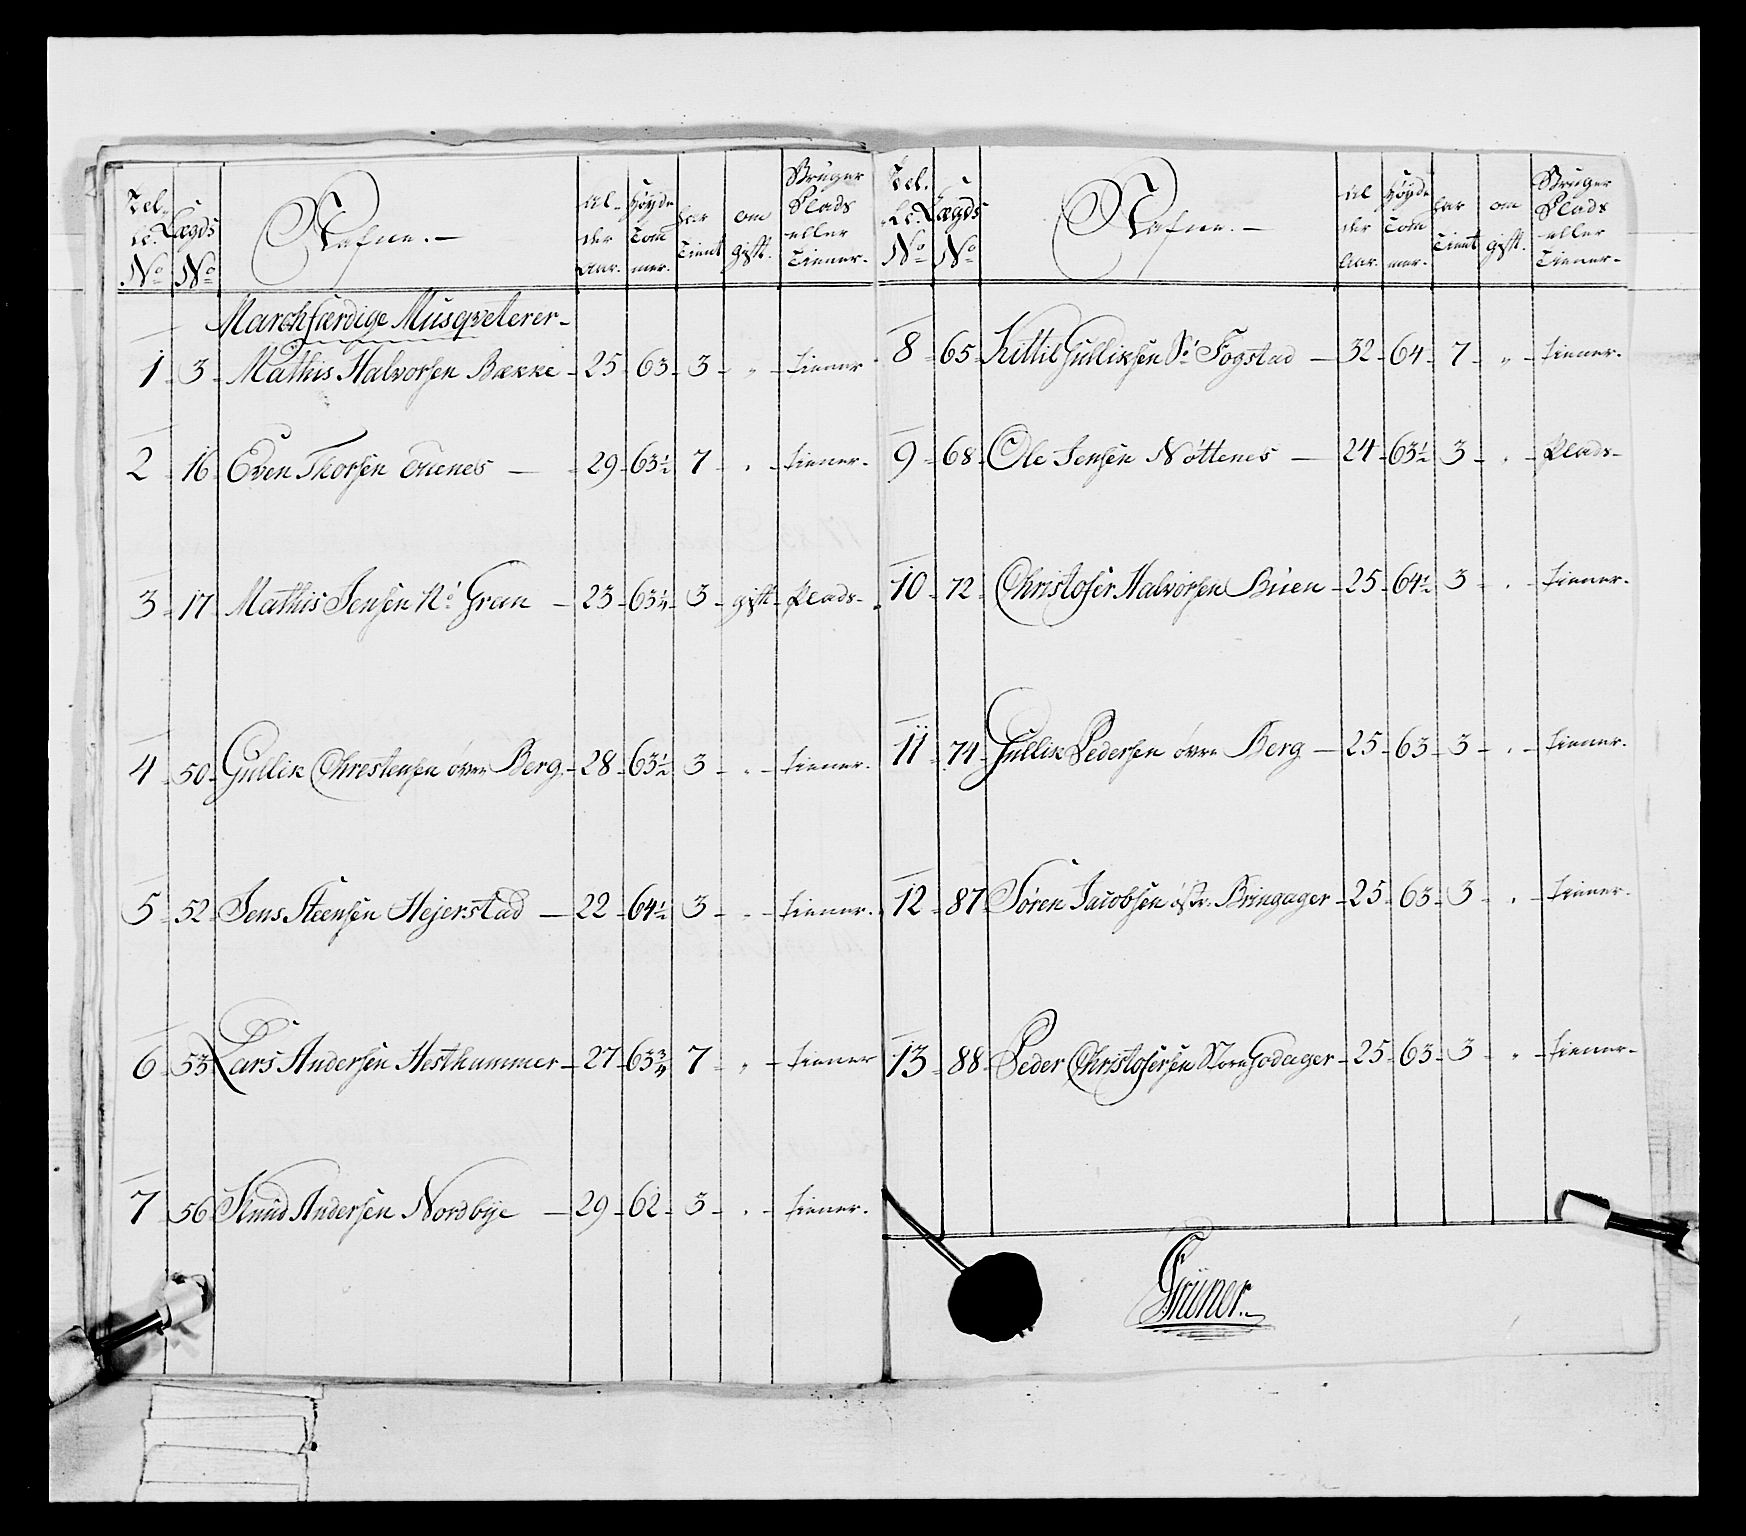 Tel. Lc. No Lægds No Nafne. Alder Aar. Høyde Tommer. har Tient om gift. Bruger Plads eller Tiener.
Marchfærdige Musqveterer
1 3 Mathis Halvorsen Bække 25 63 3 " tiener
2 16 Even Thorsen 29 63½ 7 " tiener
3 17 Mathis Jensen No: Gran 23 63¼ 3 gift Plads
4 50 Gullik Christensen øvre Berg 28 63½ 3 " tiener.
5 52 Jens Steensen Hejerstad 22 64½ 3 " tiener.
6 53 Lars Andersen Hesthammer 27 63¾ 7 " tiener
7 56 Knud Andersen Nordbye 29 62 3 " tiener.
Tel. Lc. No Lægds No Nafne. Alder Aar. Høyde Tommer. har Tient om gift. Bruger Plads eller Tiener.
8 65 Kittil Gulliksen Sr: Fogstad 32 64 7 " tiener.
9 68 Ole Jensen Nøttenes 24 63½ 3 " Plads
10 72 Christofer Halvorsen Buen 25 64½ 3 " tiener.
11 74 Gullik Pedersen øvre Berg 25 63 3 " tiener.
12 87 Søren Jacobsen østr. Bringager 25 63 3 " tiener.
13 88 Peder Christofersen Store Godager 25 63 3 " tiener.
Grüner.